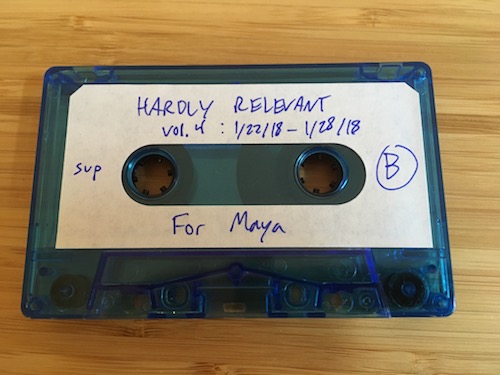 HARDLY RELEVANT
vol. 4 : 1/22/18 – 1/28/18
sup
B
For Maya